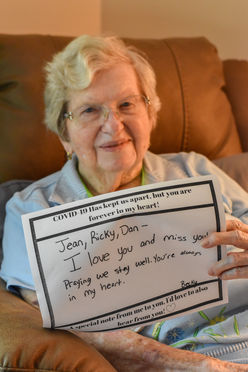 COVID-19 Has kept us apart, but you are
forever in my heart!
Jean, Ricky, Dan -
I love you and miss you!
Praying we stay well. You're always
in my heart.
A special note from me to you. I'd love to
hear from you!